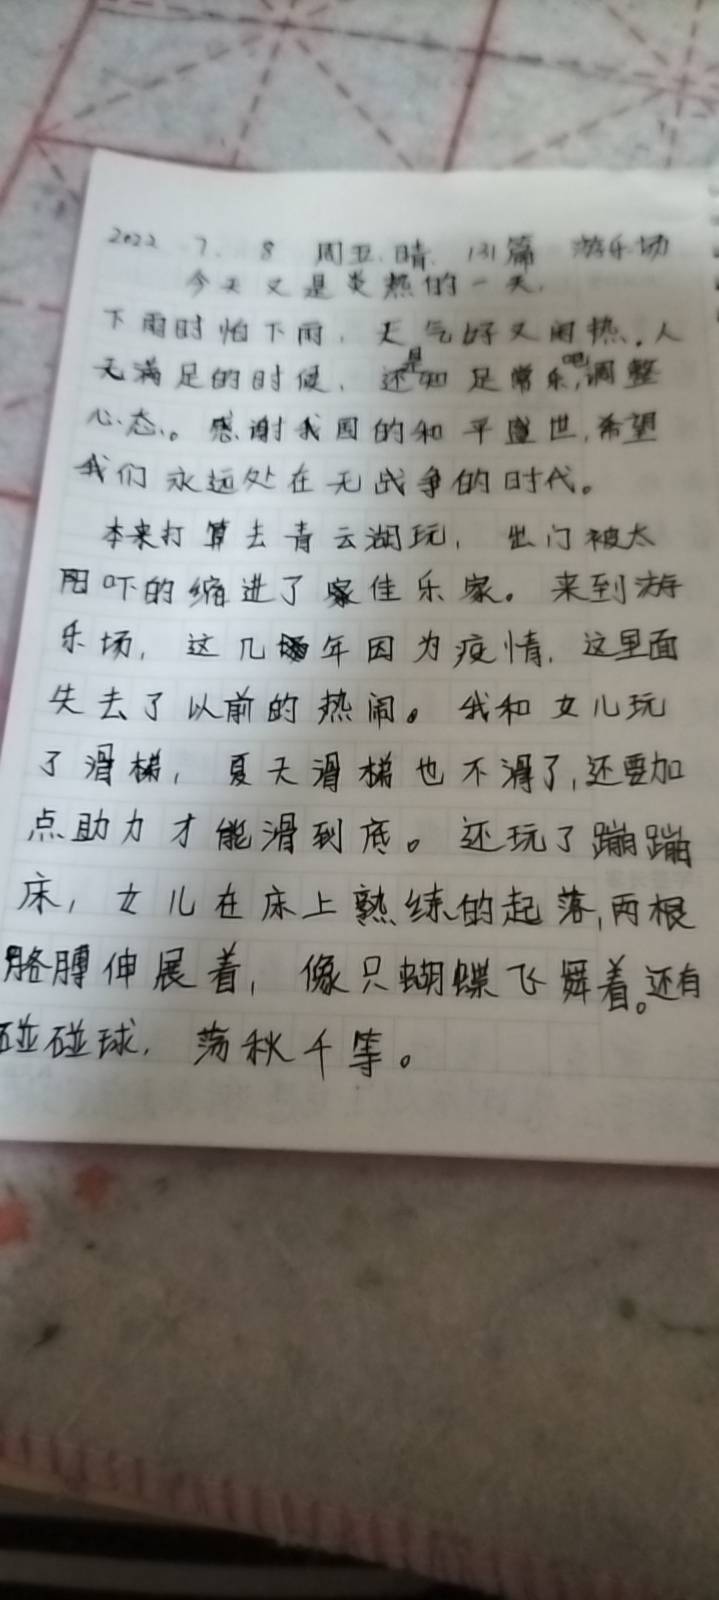 2022 7. 8 周五.晴. 131篇 游乐场
今天又是炎热的一天,
下雨时怕下雨,天气好又闷热。人
无满足的时候,还是知足常乐吧,调整
心态。感谢我国的和平盛世,希望
我们永远处在无战争的时代。
本来打算去青云湖玩,出门被太
阳吓的缩进了家佳乐家。来到游
乐场,这几年因为疫情,这里面
失去了以前的热闹。我和女儿玩
了滑梯,夏天滑梯也不滑了,还要加
点助力才能滑到底。还玩了蹦蹦
床,女儿在床上熟练的起落,两根
胳膊伸展着,像只蝴蝶飞舞着。还有
碰碰球,荡秋千等。